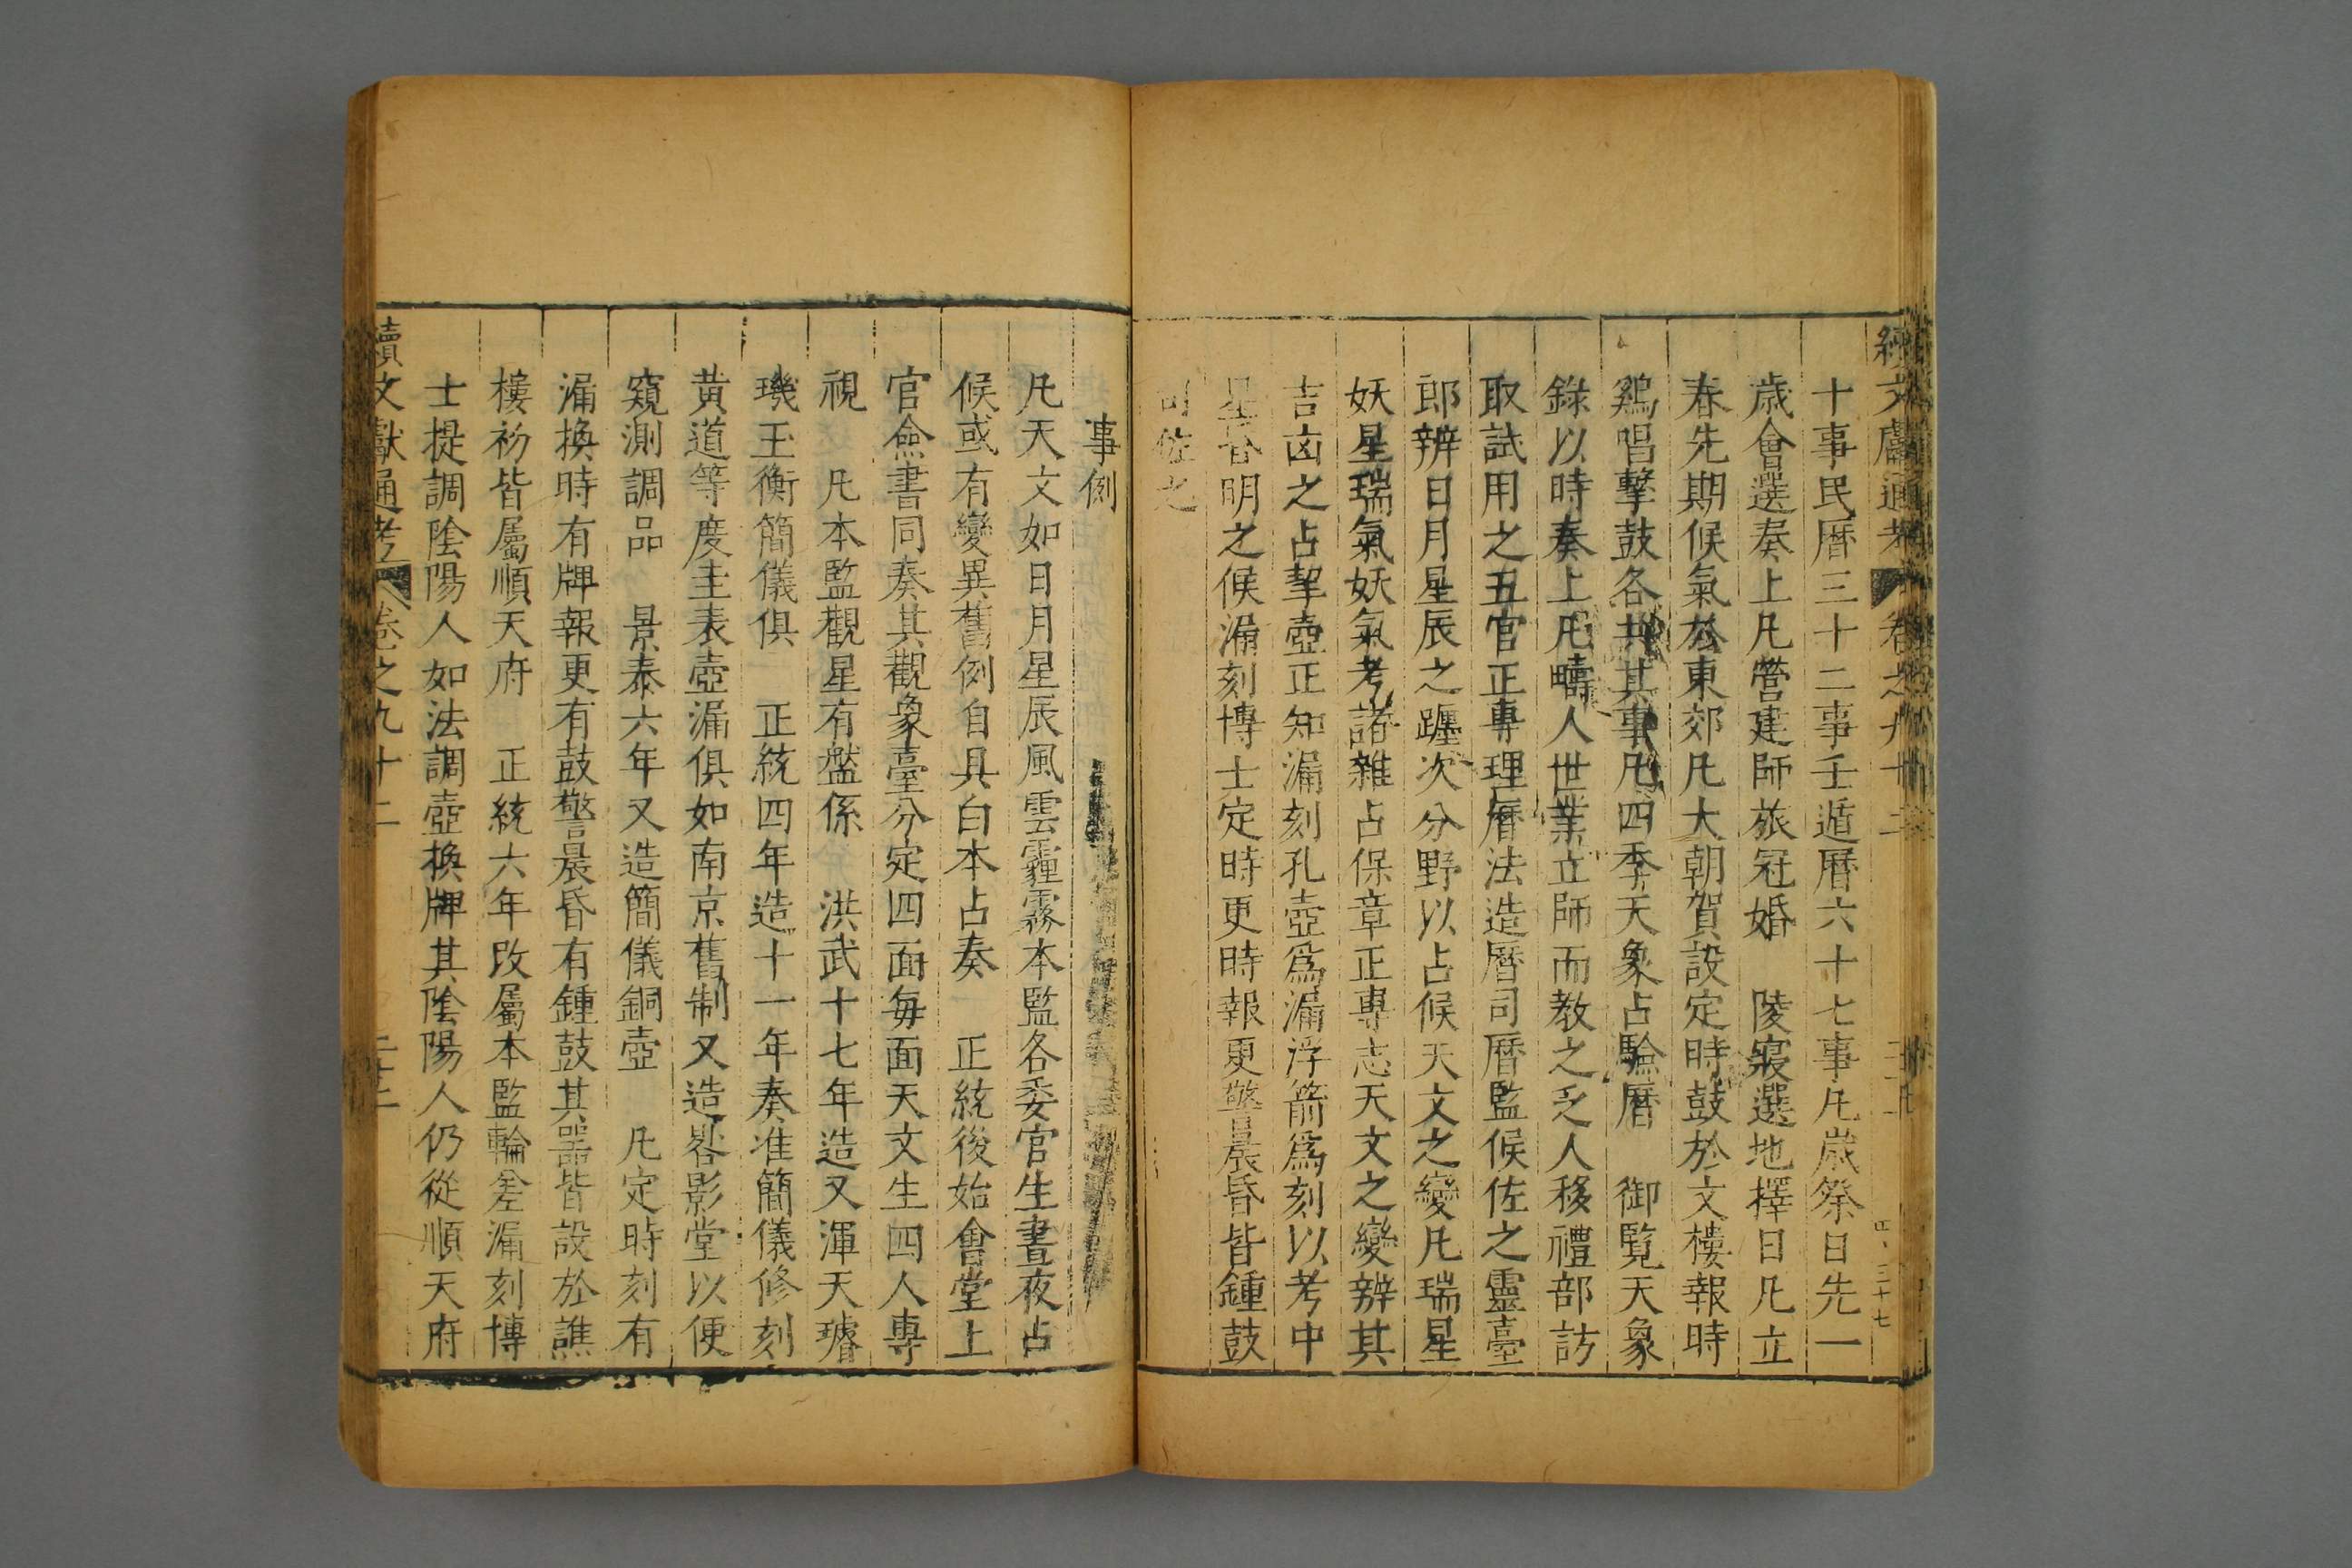 續文獻通考 卷之九十二
十事民曆三十二事壬遁曆六十七事凡歲祭日先一
歲會選奏上凡營建師旅冠婚 陵寢選地擇日凡立
春先期候氣於東郊凡大朝賀設定時鼓於文樓報時
鷄唱擊鼓各共其事凡四季天象占驗曆 御覽天象
錄以時奏上凡疇人世業立師而教之乏人移禮部訪
取試用之五官正專理曆法造曆司曆監候佐之靈臺
郎辨日月星辰之躔次分野以占候天文之變凡瑞星
妖星瑞氣妖氣考諸雜占保章正專志天文之變辨其
吉凶之占挈壺正知漏刻孔壺爲漏浮箭爲刻以考中
星昏明之候漏刻博士定時更時報更警晨昏皆鍾鼓
司佐之
事例
凡天文如日月星辰風雲霾霧本監各委官生晝夜占
候或有變異舊例自具白本占奏 正統後始會堂上
官僉書同奏其觀象臺分定四面每面天文生四人專
視 凡本監觀星有盤係 洪武十七年造又渾天璿
璣玉衡簡儀俱 正統四年造十一年奏准簡儀修刻
黃道等度圭表壺漏俱如南京舊制又造晷影堂以便
窺測調品 景泰六年又造簡儀銅壺 凡定時刻有
漏換時有牌報更有鼓警晨昏有鍾鼓其器皆設於譙
樓初皆屬順天府 正統六年改屬本監輪差漏刻博
士提調陰陽人如法調壺換牌其陰陽人仍從順天府
續文獻通考 卷之九十二